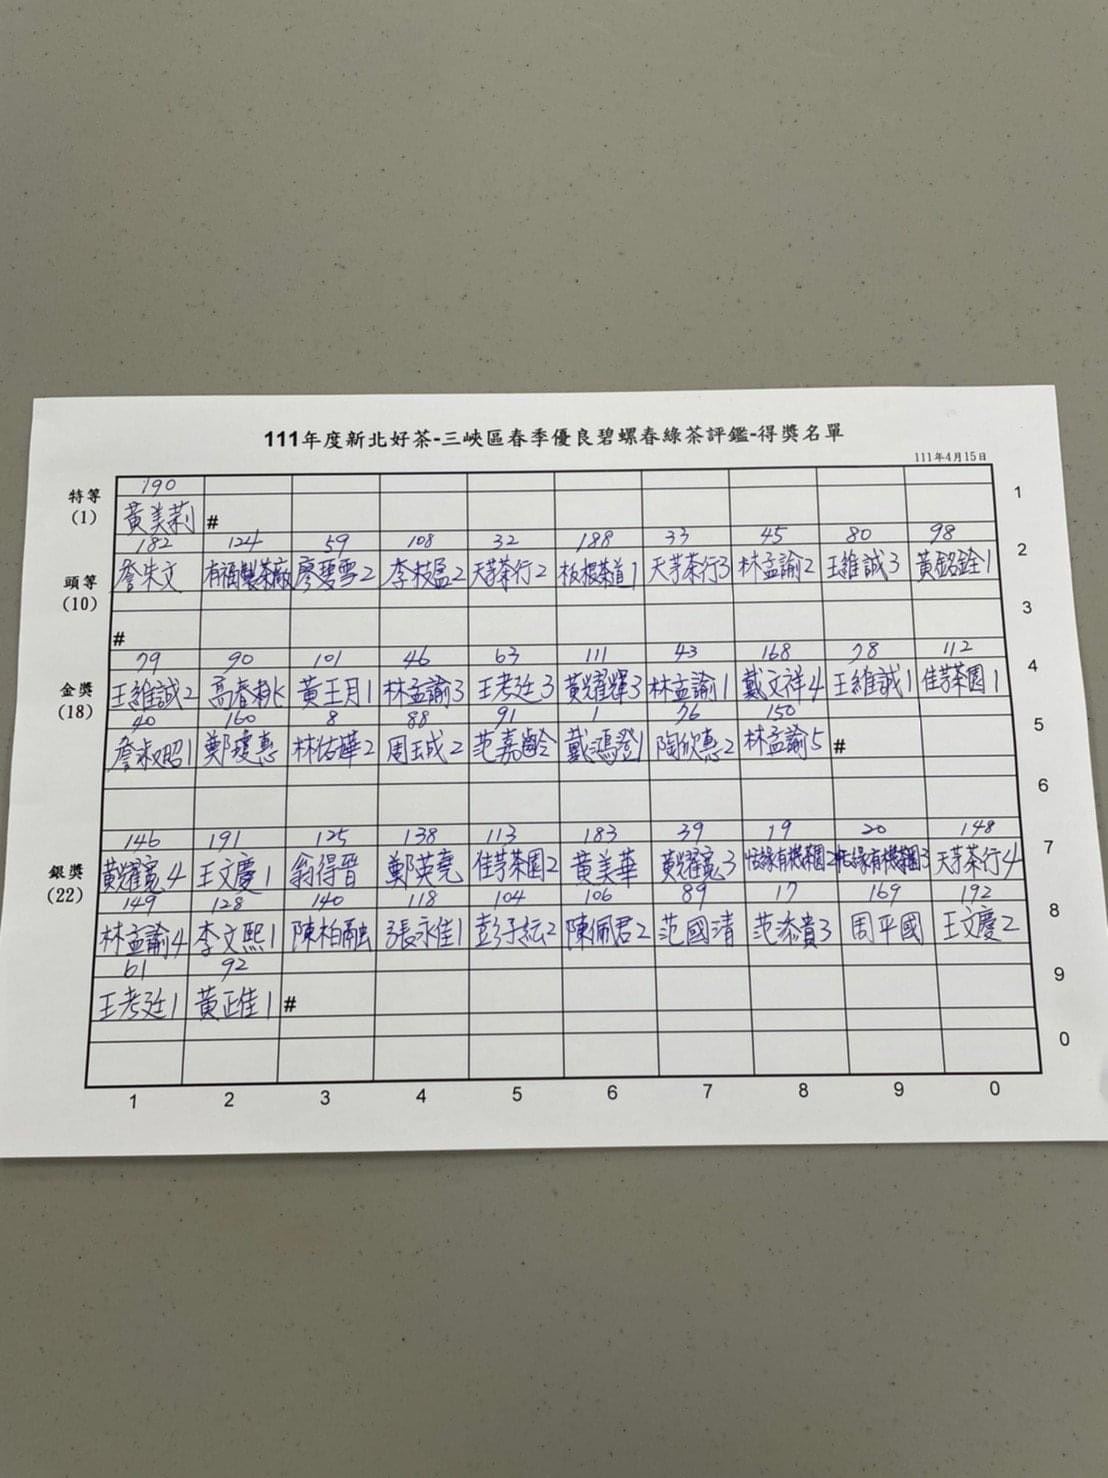 111年度新北好茶-三峽區春季優良碧螺春綠茶評鑑-得獎名單
111年4月15日
特等
(1)
190
黃美莉 #
1
頭等
(10)
182 124 59 108 32 188 33 45 80 98
詹朱文 有福製茶廠 廖碧雪2 李枝盈2 天芽茶行2 板根茶道1 天芽茶行3 林孟諭2 王維誠3 黃銘銓1
2
#
3
金獎
(18)
79 90 101 46 63 111 43 168 78 112
王維誠2 高春桃 黃王月1 林孟諭3 王考廷3 黃耀輝3 林孟諭1 戴文祥4 王維誠1 佳芽茶園1
4
40 160 8 88 91 1 76 150
詹淑昭1 鄭瓊惠 林佑曄2 周玉成2 范嘉齡 戴鴻澄1 陶欣惠2 林孟諭5 #
5
6
銀獎
(22)
146 191 125 138 113 183 39 19 20 148
黃耀寬4 王文慶1 翁得晉 鄭英堯 佳芽茶園2 黃美華 黃耀寬3 恬緣有機茶園2 恬緣有機茶園3 天芽茶行4
7
149 128 140 118 104 106 89 17 169 192
林孟諭4 李文熙1 陳柏融 張永佳1 彭子紜2 陳佩君2 范國清 范添貴3 周平國 王文慶2
8
61 92
王考廷1 黃正佳1 #
9
0
1 2 3 4 5 6 7 8 9 0